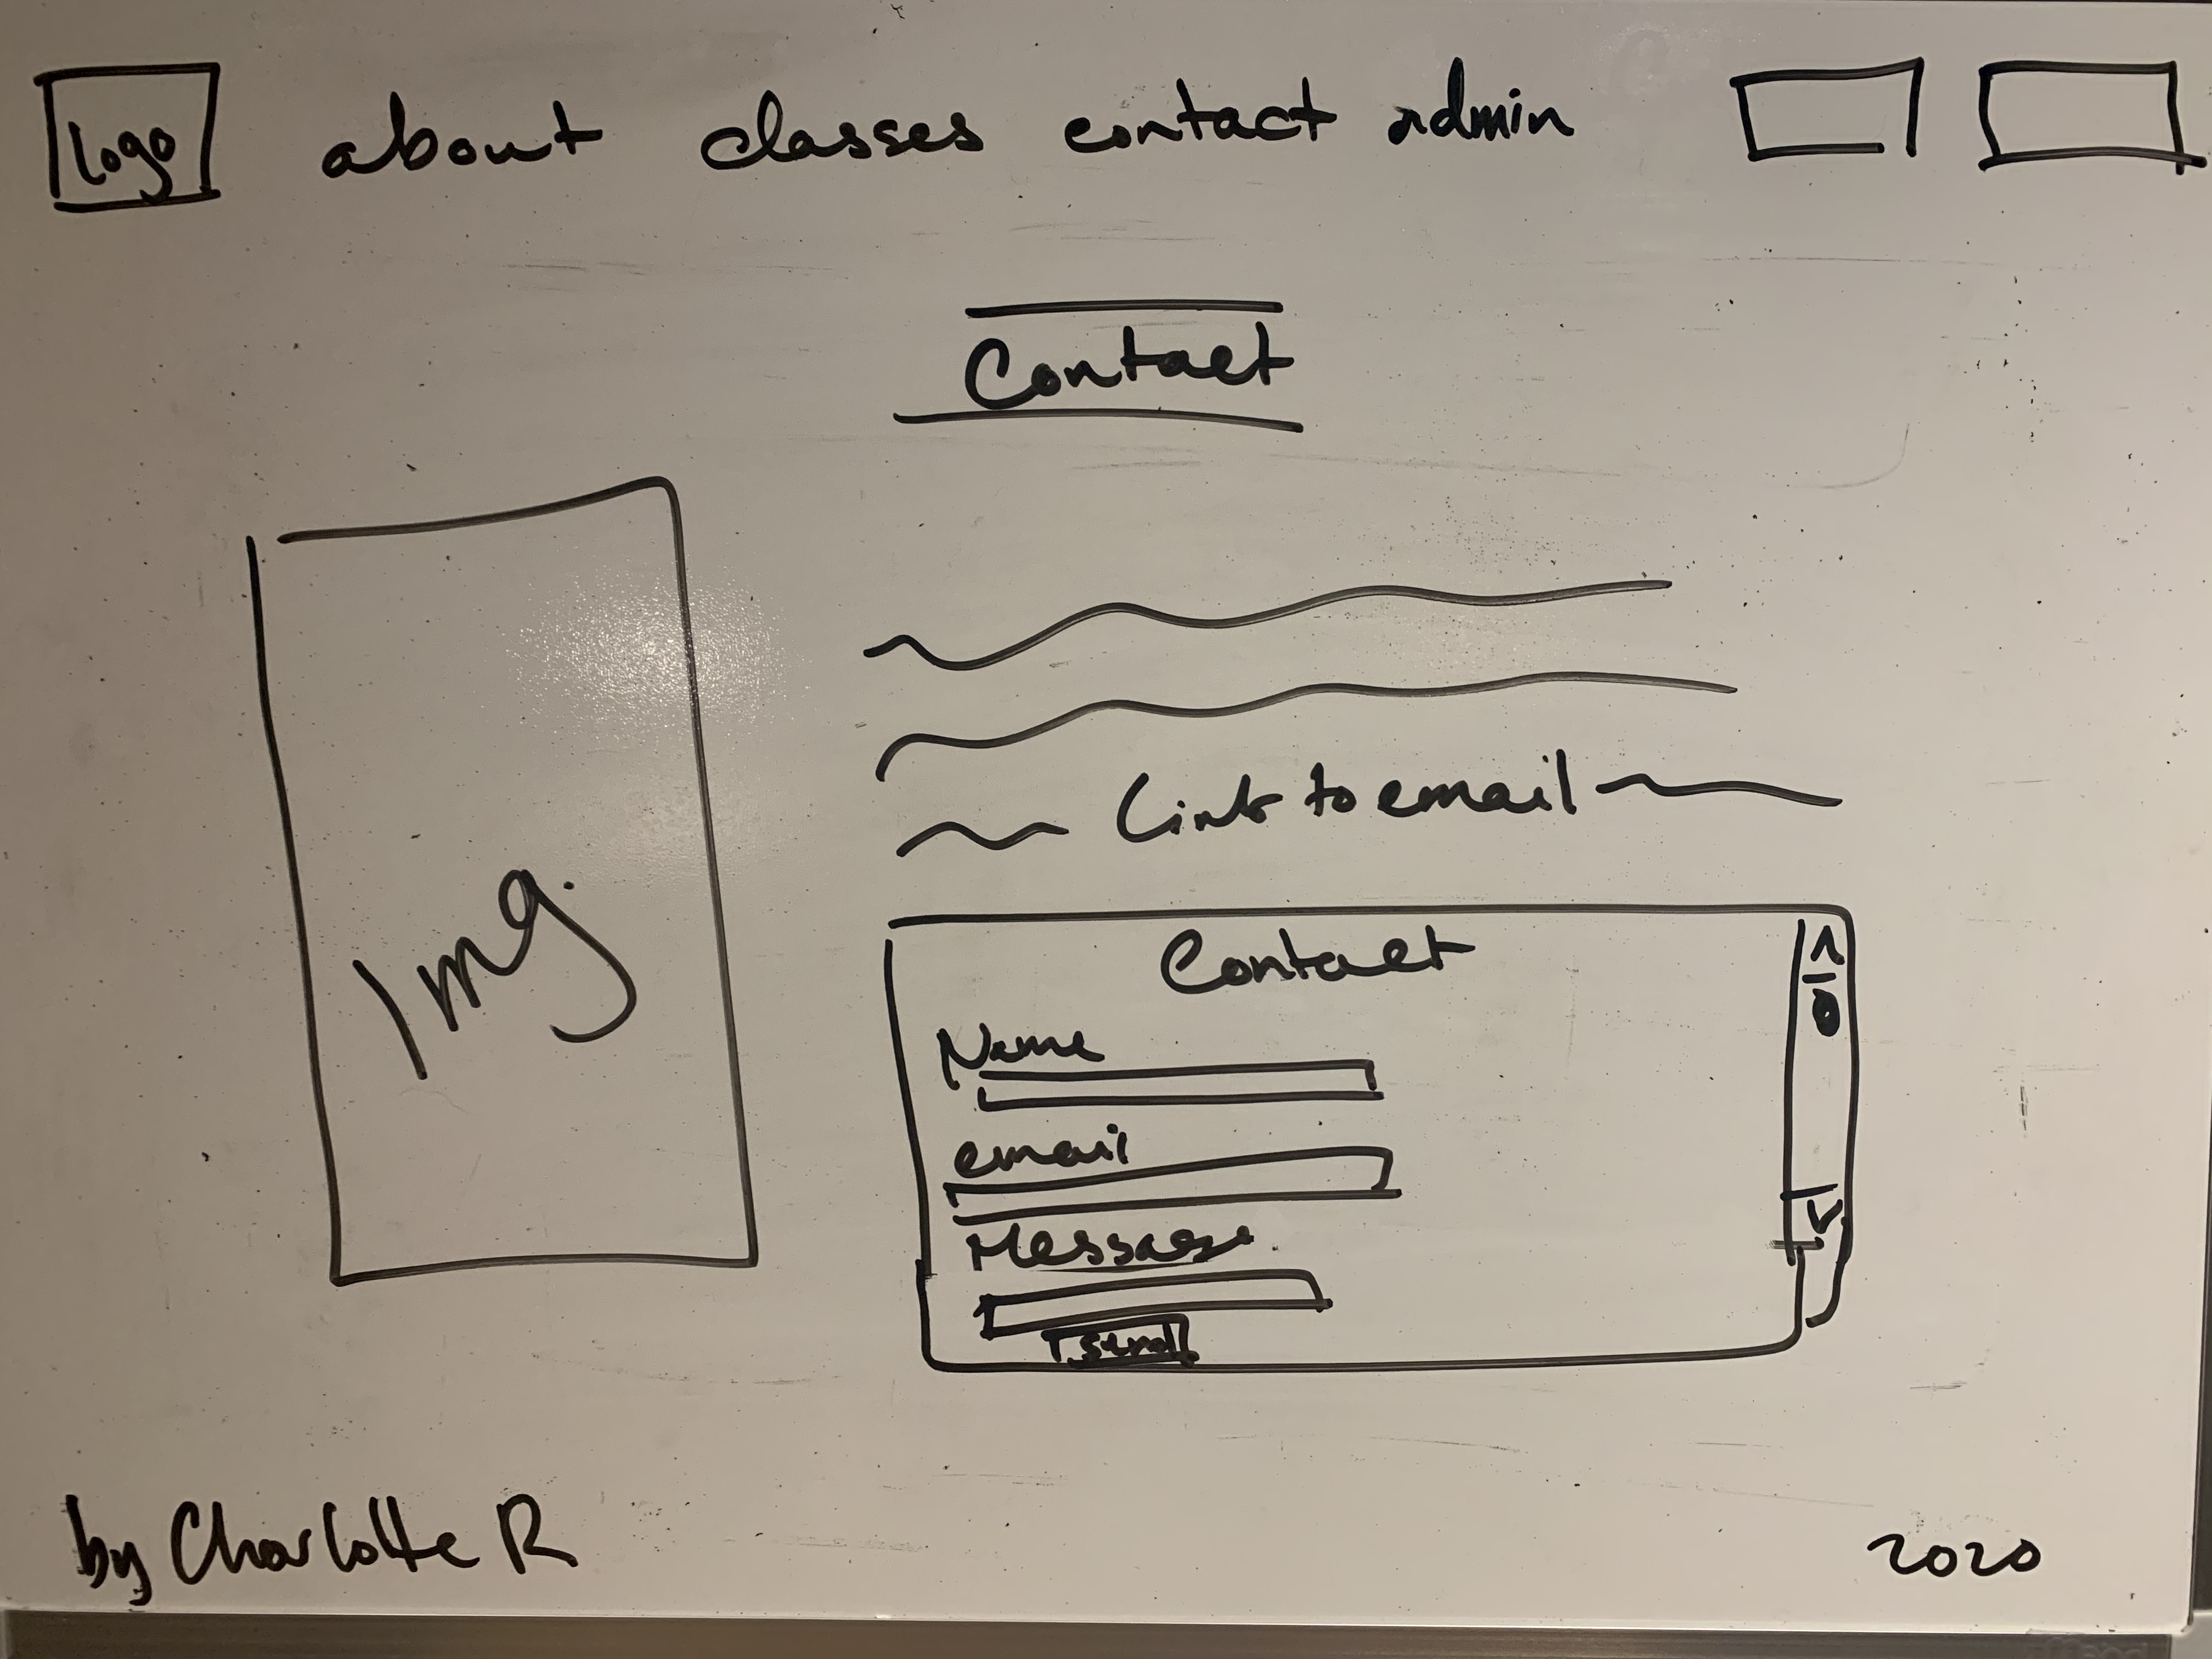 logo about classes contact admin
Contact
Link to email
Contact
Name
email
Message
send
by Charlotte R
2020